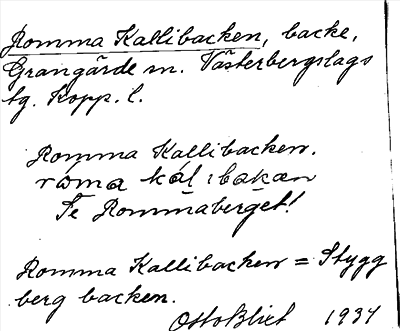 Romma Kallibacken, backe,
Grangärde sn. Västerbergslags
tg. Kopp. l.
Romma Kallibacken.
Se Rommaberget!
Romma Kallibacken = Stygg
berg backen.
Otto Blixt 1934